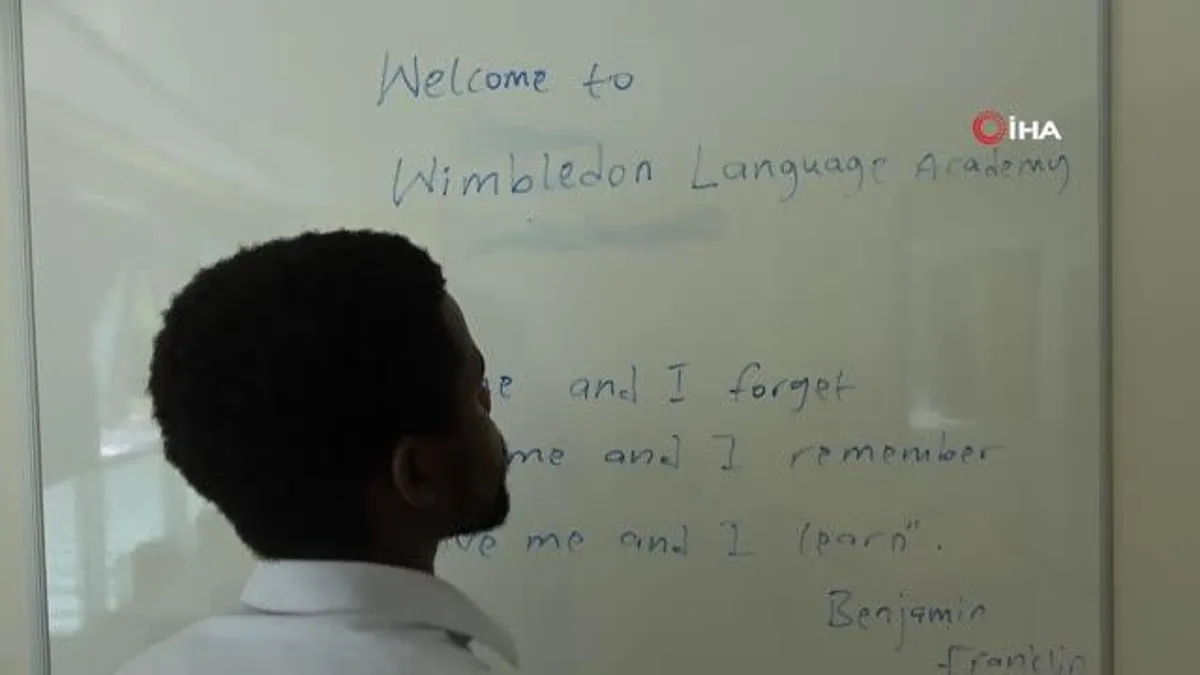 Welcome to
İHA
Wimbledon Language Academy
and I forget
me and I remember
me and I learn".
Benjamin
Franklin